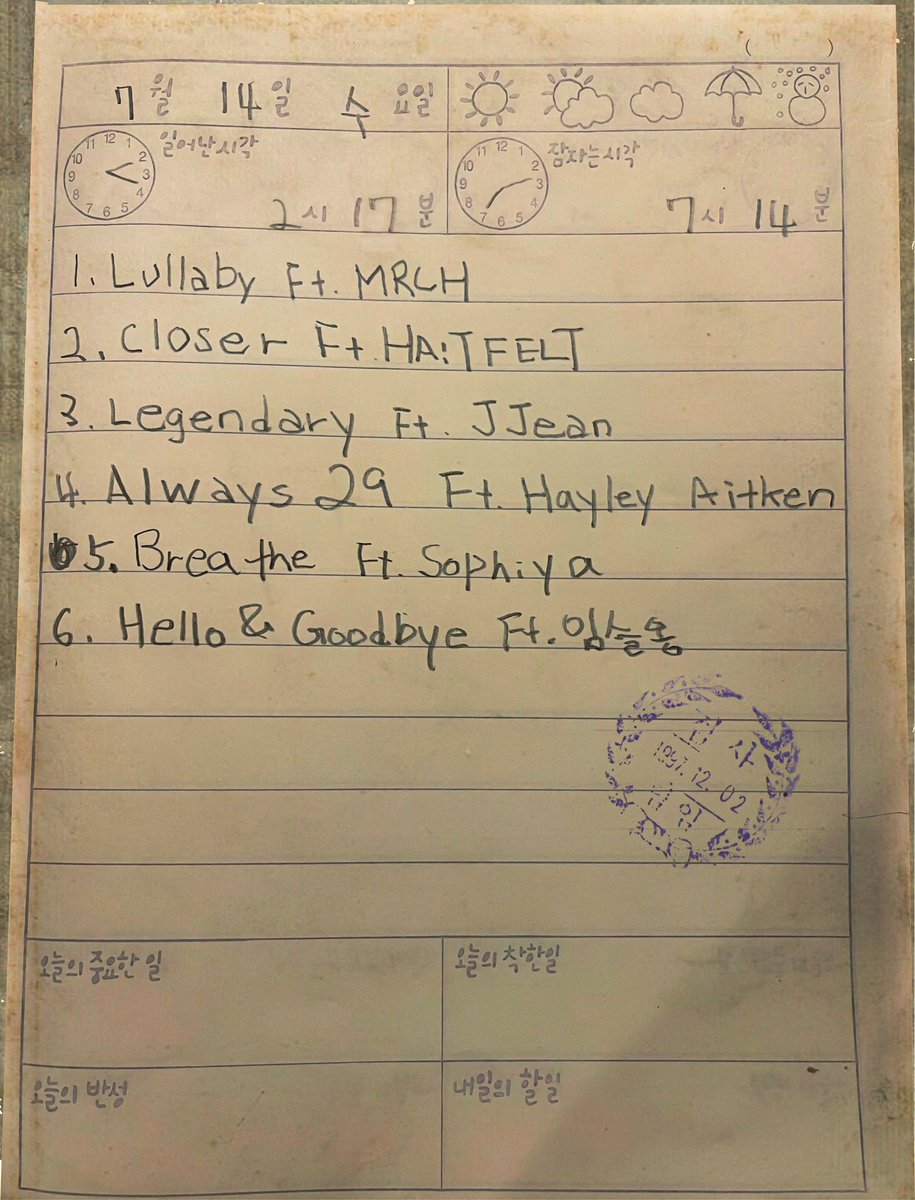 ( )
7월 14일 수요일
일어난시각
12 1 2 3 4 5 6 7 8 9 10 11
2시 17분
잠자는시각
12 1 2 3 4 5 6 7 8 9 10 11
7시 14분
1. Lullaby Ft. MRCH
2. Closer Ft. HA:TFELT
3. Legendary Ft. JJean
4. Always 29 Ft. Hayley Aitken
5. Breathe Ft. Sophiya
6. Hello & Goodbye Ft. 임슬옹
검사
1997.12.02
확인
오늘의 중요한 일
오늘의 착한일
오늘의 반성
내일의 할일